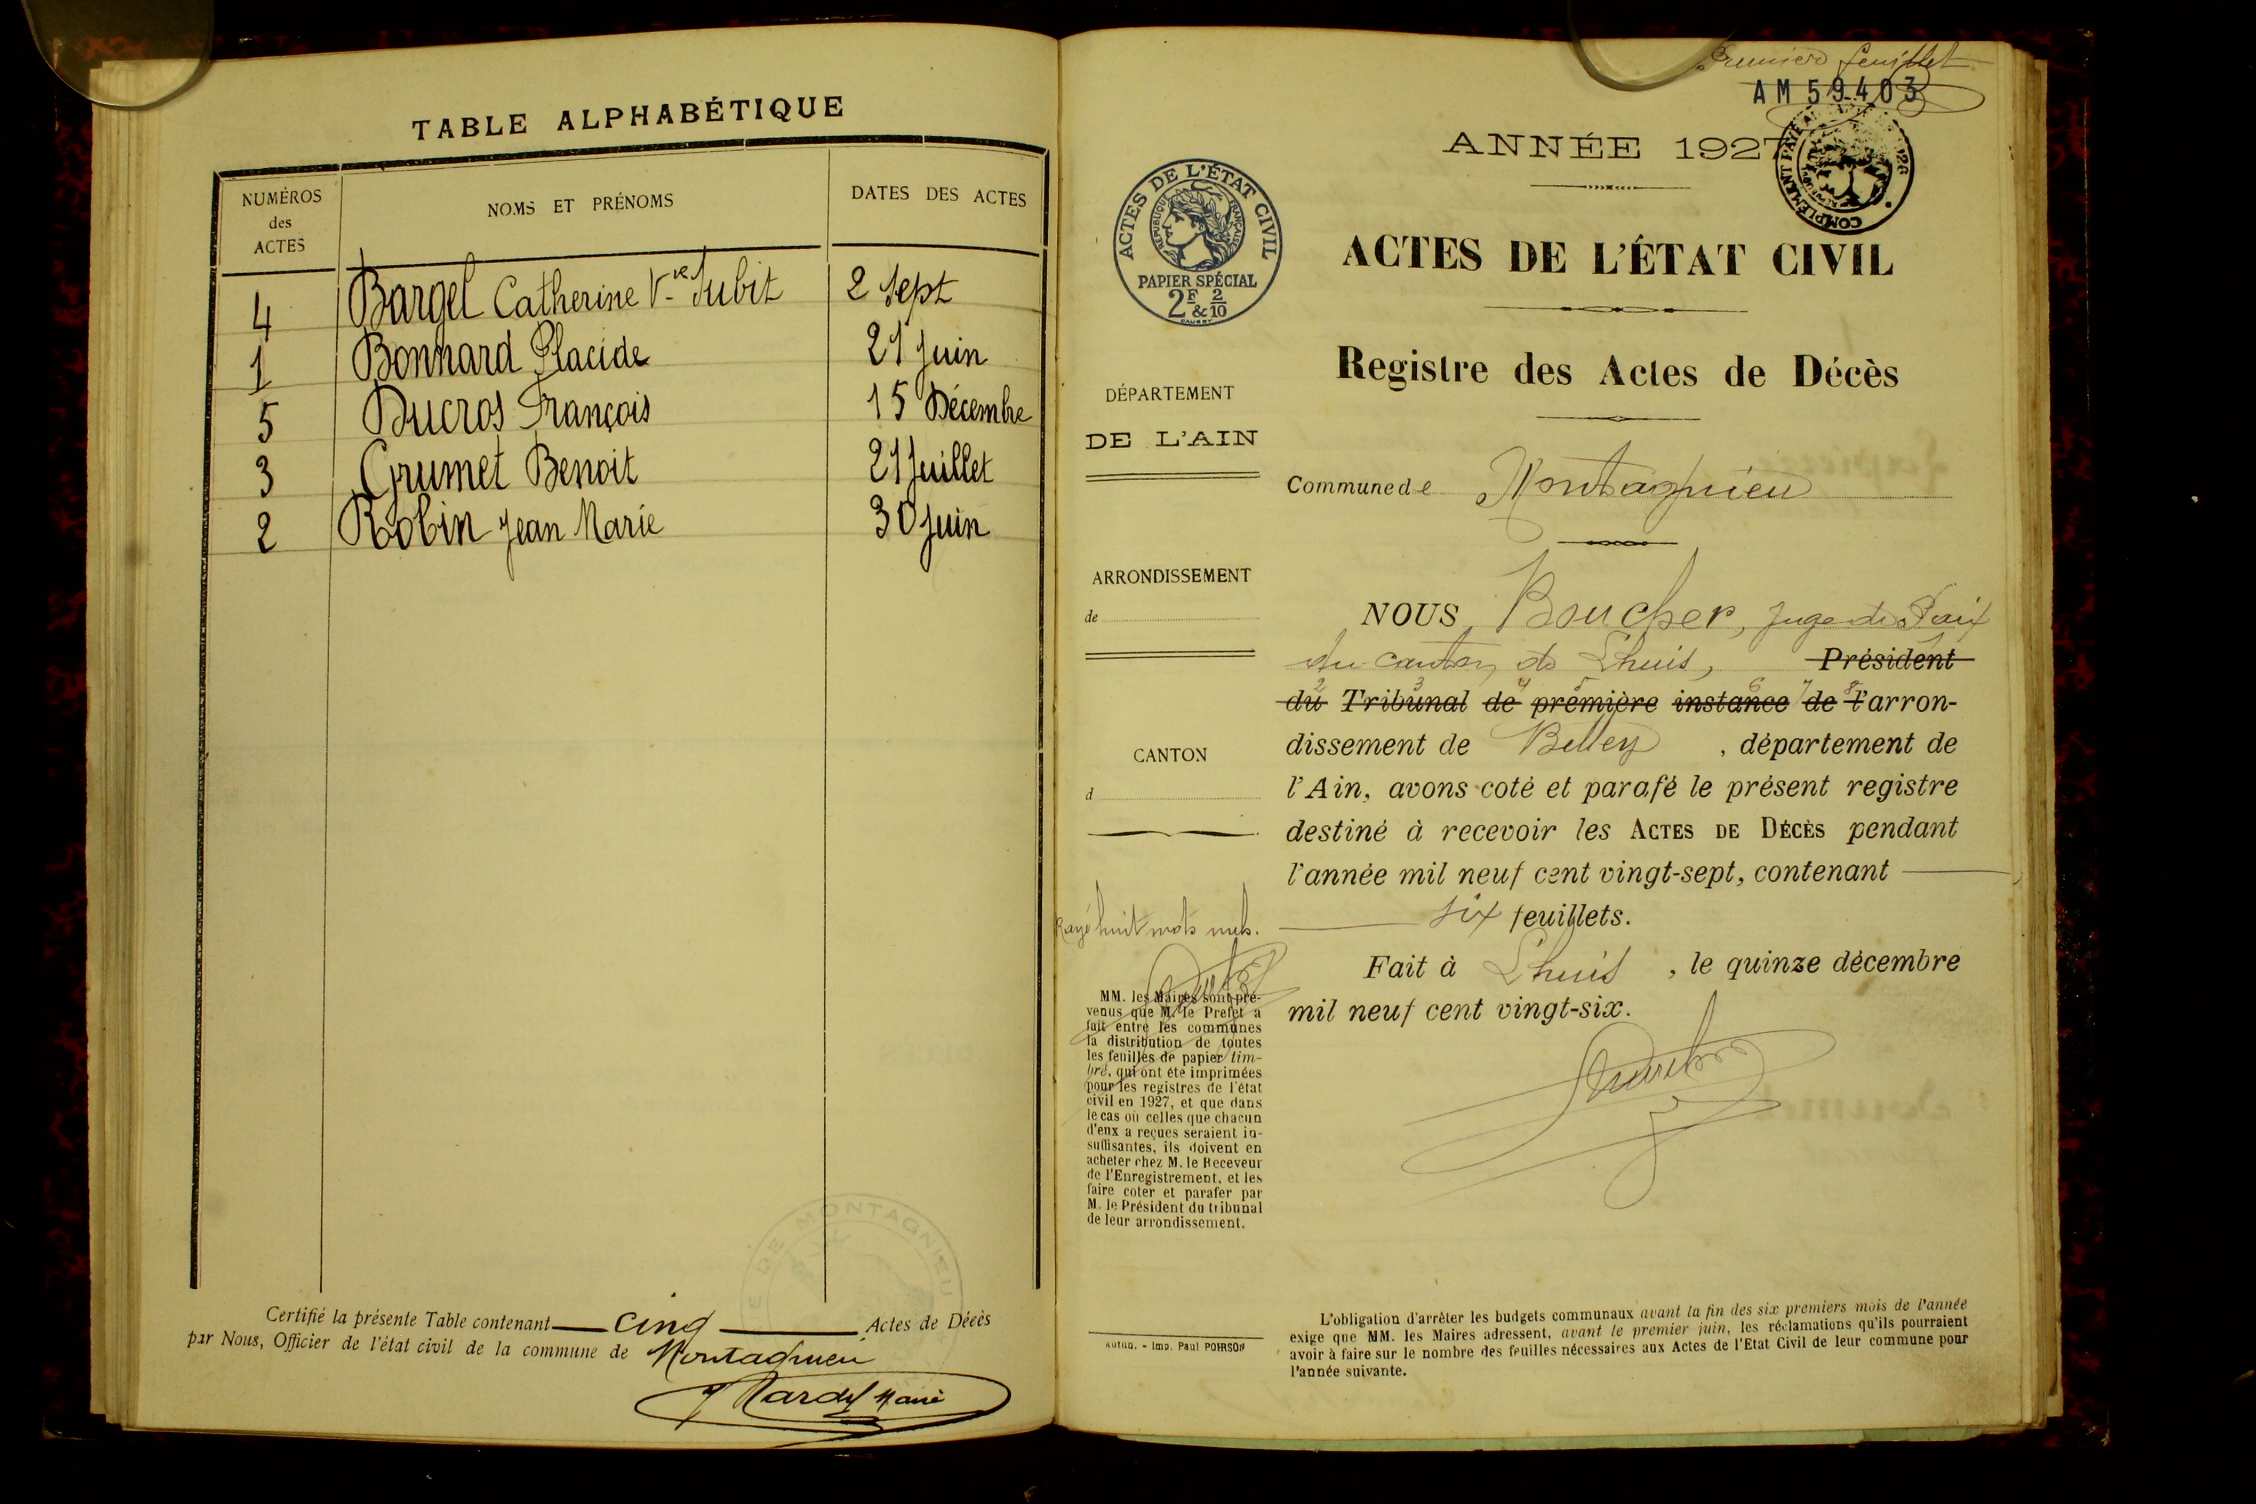 TABLE ALPHABÉTIQUE
NUMÉROS des ACTES
NOMS ET PRÉNOMS
DATES DES ACTES
4 Bargel Catherine Vve Subit 2 Sept
1 Bonnard Placide 21 Juin
5 Ducros François 15 Décembre
3 Grumet Benoit 21 Juillet
2 Robin Jean Marie 30 Juin
Certifié la présente Table contenant cinq Actes de Décès
par Nous, Officier de l'état civil de la commune de Montagnieu
Maire
DE MONTAGNIEU
Premier feuillet
AM 59403
ANNÉE 1927
COMPLÉMENT PAYÉ
ACTES DE L'ÉTAT CIVIL
RÉPUBLIQUE FRANÇAISE
PAPIER SPÉCIAL
2F & 2/10
ACTES DE L'ÉTAT CIVIL
Registre des Actes de Décès
DÉPARTEMENT
DE L'AIN
Commune de Montagnieu
ARRONDISSEMENT
de
CANTON
d
NOUS Boucher, Juge de Paix
du canton de Lhuis, Président
du Tribunal de première instance de l'arron-
2 3 4 5 6 7 8
dissement de Belley, département de
l'Ain, avons coté et parafé le présent registre
destiné à recevoir les ACTES DE DÉCÈS pendant
l'année mil neuf cent vingt-sept, contenant
six feuillets.
Fait à Lhuis, le quinze décembre
mil neuf cent vingt-six.
Rayé huit mots nuls.
MM. les Maires sont pré-
venus que M. le Préfet a
fait entre les communes
la distribution de toutes
les feuilles de papier tim-
bré, qui ont été imprimées
pour les registres de l'état
civil en 1927, et que dans
le cas où celles que chacun
d'eux a reçues seraient in-
suffisantes, ils doivent en
acheter chez M. le Receveur
de l'Enregistrement, et les
faire coter et parafer par
M. le Président du tribunal
de leur arrondissement.
Autun. - Imp. Paul POIRSON
L'obligation d'arrêter les budgets communaux avant la fin des six premiers mois de l'année
exige que MM. les Maires adressent, avant le premier juin, les réclamations qu'ils pourraient
avoir à faire sur le nombre des feuilles nécessaires aux Actes de l'Etat Civil de leur commune pour
l'année suivante.